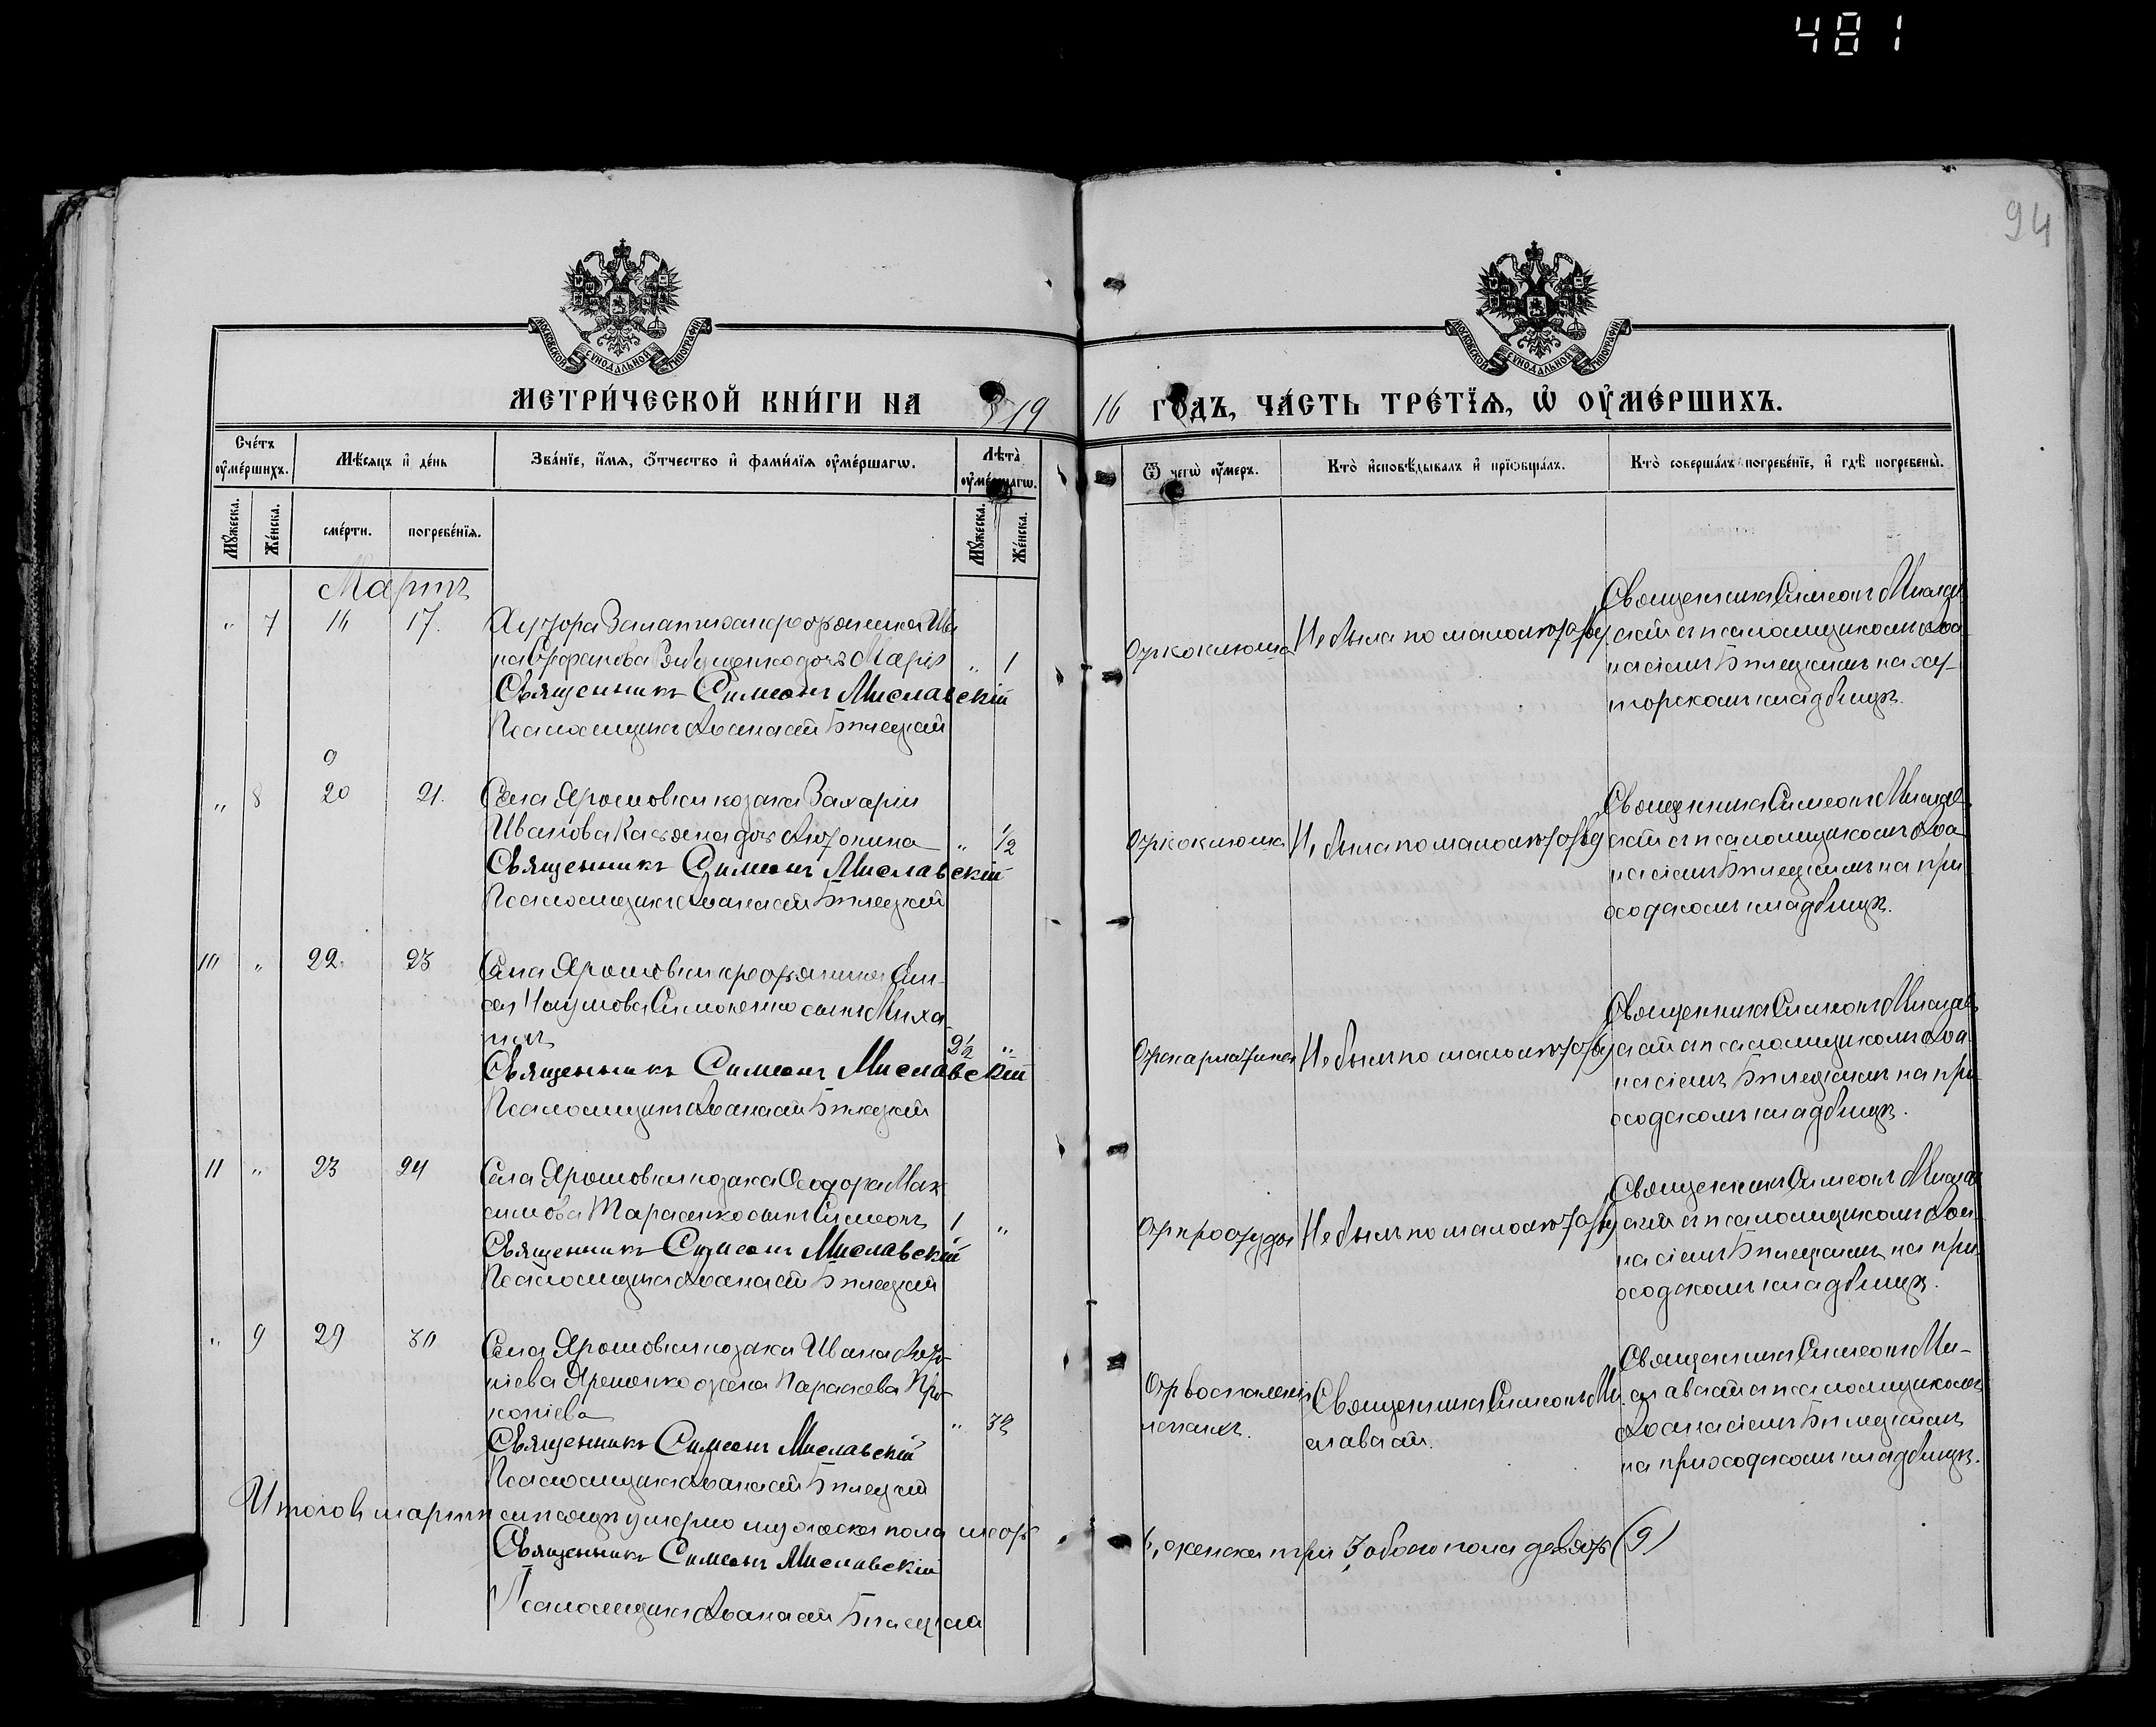 481
94
МОСКОВСКОЙ СУНОДАЛЬНОЙ ТИПОГРАФІИ
МОСКОВСКОЙ СУНОДАЛЬНОЙ ТИПОГРАФІИ
МЕТРИ́ЧЕСКОЙ КНИ́ГИ НА 1919 16 ГО́ДЪ, ЧА́СТЬ ТРЕ́ТЇѦ, Ѡ҆ ОУ҆МЕ́РШИХЪ.
Сче́тъ оу҆ме́ршихъ.
Мѣ́сяцъ и҆ де́нь
Зва́нїе, и҆́мя, ѻ҆́тчество и҆ фами́лїя оу҆ме́ршагѡ.
Лѣ́та оу҆ме́ршагѡ.
Ѿ чегѡ̀ оу҆́меръ.
Кто̀ и҆сповѣ́дывалъ и҆ прїѻбща́лъ.
Кто̀ соверша́лъ погребе́нїе, и҆ гдѣ̀ погребены̀.
Мꙋ́жеска.
Же́нска.
сме́рти.
погребе́нїя.
Мꙋ́жеска.
Же́нска.
Мартъ
" 7 16 17. Хутора крестьянина Ива
на дочь Марія " 1
Священникъ Симеонъ Миславскій
Псаломщикъ Аѳанасій Бѣлецкій
Отъ коклюша
Не была по малолѣтству
Священникъ Симеонъ Мислав
скій съ псаломщикомъ Аѳа
насіемъ Бѣлецкимъ на ху-
торскомъ кладбищѣ.
9
" 8 20 21. Села Ярошовки козака Захарія
Иванова дочь Антонина " 1/2
Священникъ Симеонъ Миславскій
Псаломщикъ Аѳанасій Бѣлецкій
Отъ коклюша
Не была по малолѣтству
Священникъ Симеонъ Мислав
скій съ псаломщикомъ Аѳа
насіемъ Бѣлецкимъ на при
ходскомъ кладбищѣ.
10 " 22 23 Села Ярошовки крестьянина Ели-
сея Наумова Симоненко сынъ Миха
илъ 2 1/2 "
Священникъ Симеонъ Миславскій
Псаломщикъ Аѳанасій Бѣлецкій
Отъ скарлатины
Не былъ по малолѣтству
Священникъ Симеонъ Мислав
скій съ псаломщикомъ Аѳа
насіемъ Бѣлецкимъ на при
ходскомъ кладбищѣ.
11 " 23 24 Села Ярошовки козака Ѳеодора Мак
симова Тарасенко сынъ Симеонъ 1 "
Священникъ Симеонъ Миславскій
Псаломщикъ Аѳанасій Бѣлецкій
Отъ простуды
Не былъ по малолѣтству
Священникъ Симеонъ Мислав
скій съ псаломщикомъ Аѳа
насіемъ Бѣлецкимъ на при
ходскомъ кладбищѣ.
" 9 29 30 Села Ярошовки козака Ивана
Яременко жена Параскева Про
копіева " 32
Священникъ Симеонъ Миславскій
Псаломщикъ Аѳанасій Бѣлецкій
Отъ воспаленія
легкихъ.
Священникъ Симеонъ Ми
славскій.
Священникъ Симеонъ Ми-
славскій съ псаломщикомъ
Аѳанасіемъ Бѣлецкимъ
на приходскомъ кладбищѣ.
Итого въ мартѣ мѣсяцѣ умерло мужеска пола шесть 6, женска три 3, обоего пола девять (9)
Священникъ Симеонъ Миславскій
Псаломщикъ Аѳанасій Бѣлецкій